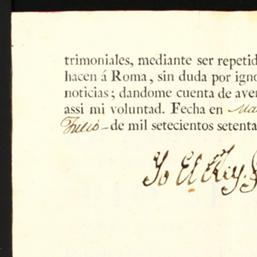 trimoniales, mediante ser repetid
hacen á Roma, sin duda por igno
noticias; dandome cuenta de aver
assi mi voluntad. Fecha en Ma
Julio de mil setecientos setenta
Yo El Rey.